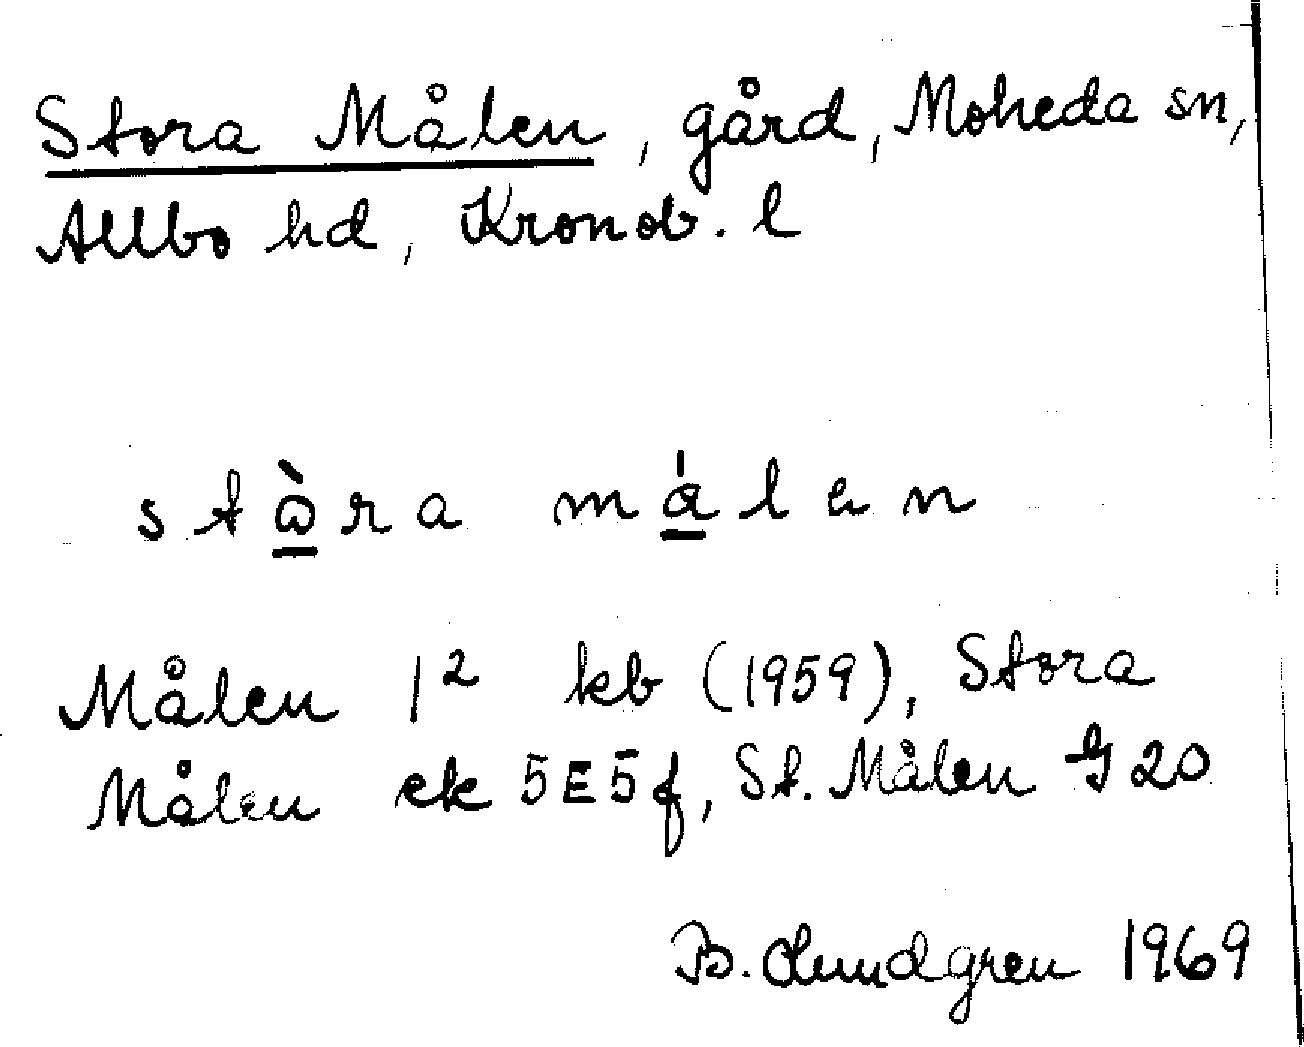 Stora Målen, gård, Moheda sn,
Allbo hd, Kronob. l
stὼ̠ra mά̠len
Målen 1² kb (1959), Stora
Målen ek 5E5f, St. Målen G20
B. Lundgren 1969